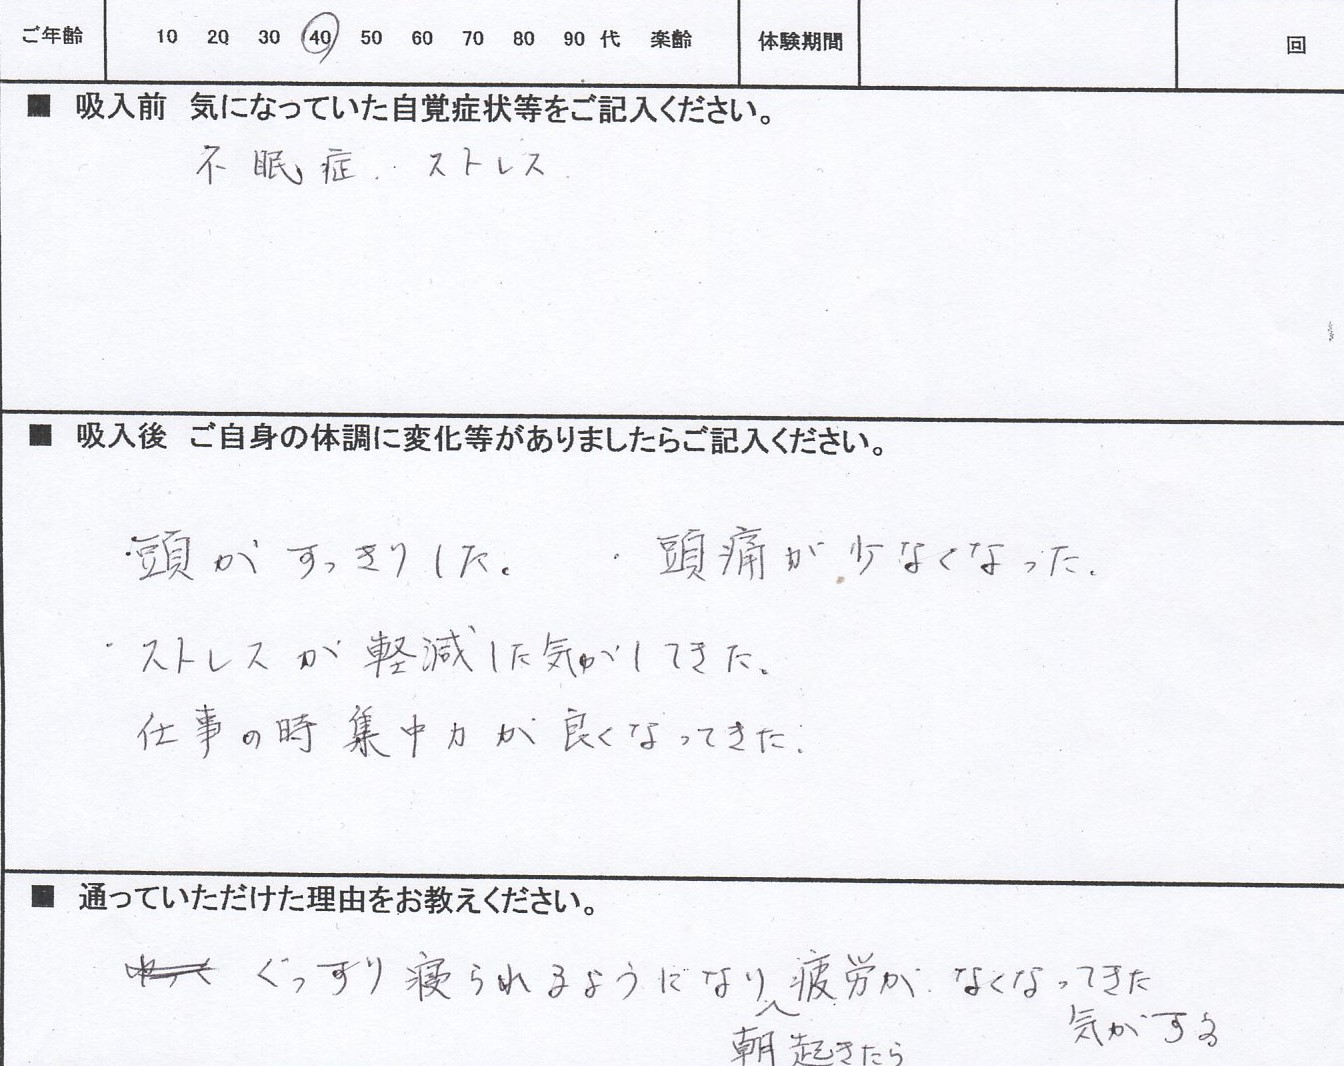 ご年齢 10 20 30 40 50 60 70 80 90 代 楽齢 体験期間 回
■ 吸入前 気になっていた自覚症状等をご記入ください。
不眠症. ストレス.
■ 吸入後 ご自身の体調に変化等がありましたらご記入ください。
・頭がすっきりした。 ・頭痛が少なくなった.
・ストレスが軽減した気がしてきた。
仕事の時集中力が良くなってきた.
■ 通っていただけた理由をお教えください。
ぐっすり寝られるようになり疲労がなくなってきた
気がする
朝起きたら